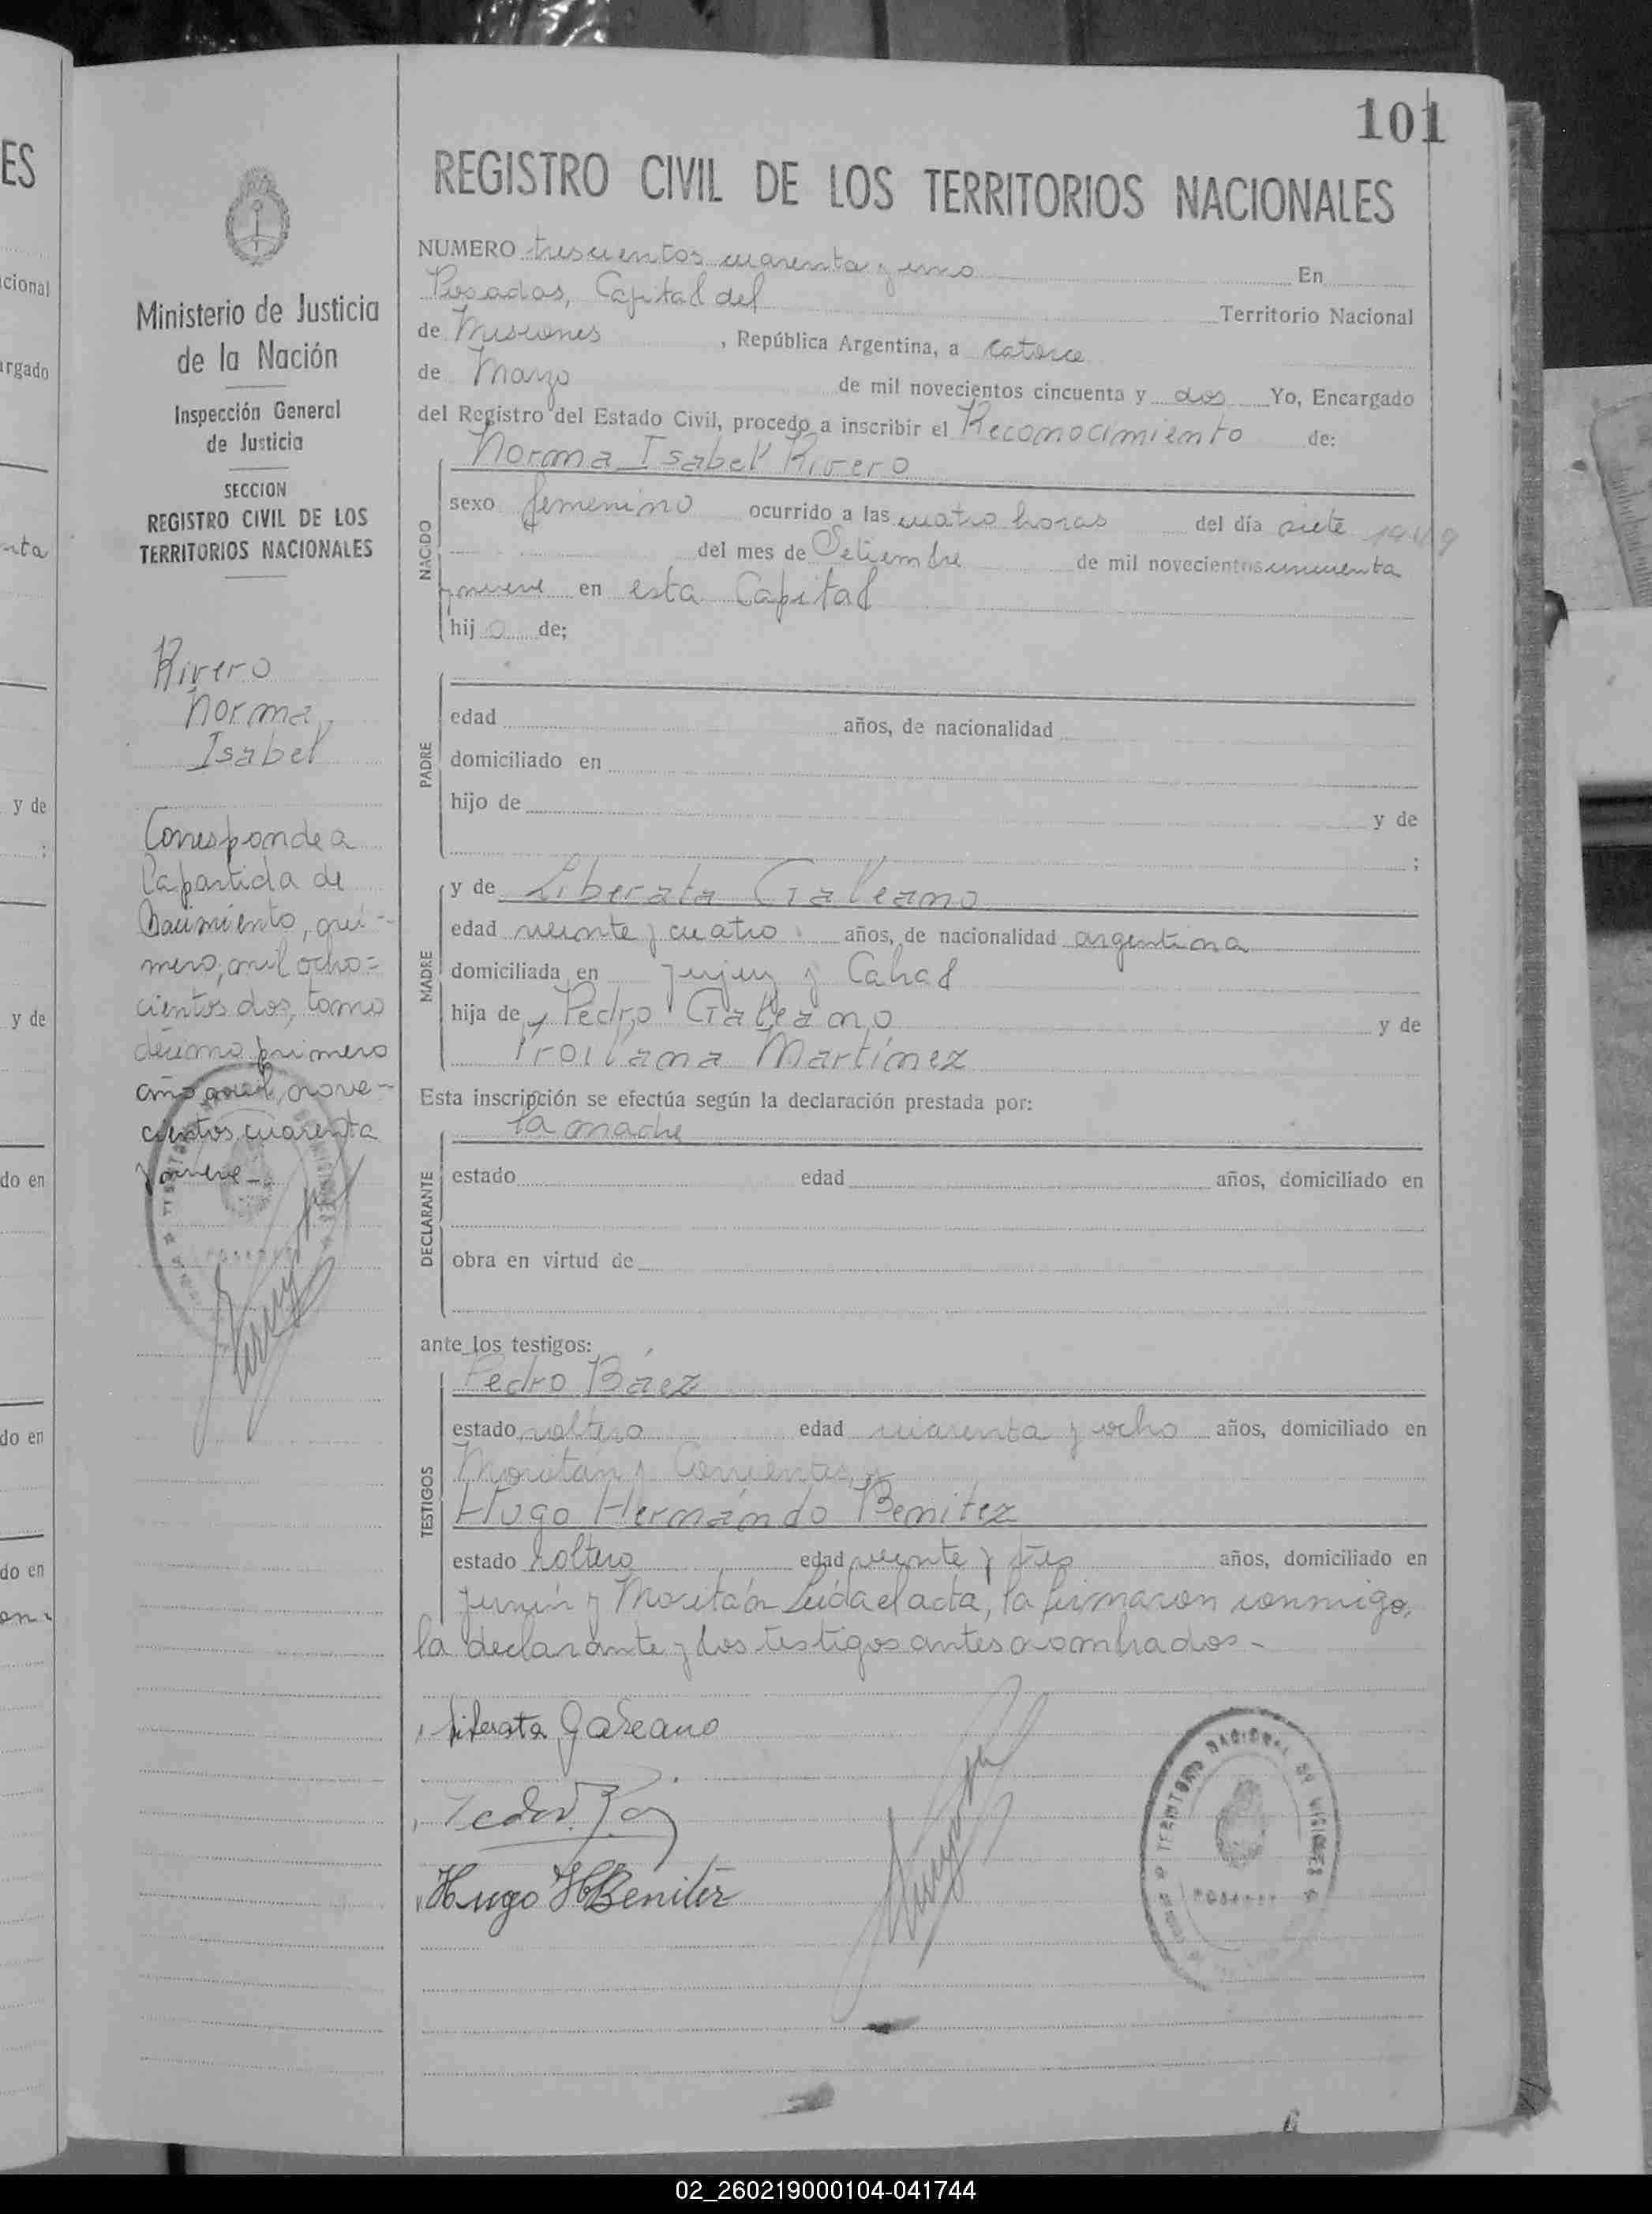 101
REGISTRO CIVIL DE LOS TERRITORIOS NACIONALES
Ministerio de Justicia
de la Nación
Inspección General
de Justicia
SECCION
REGISTRO CIVIL DE LOS
TERRITORIOS NACIONALES
Rivero
Norma
Isabel
Corresponde a
la partida de
Nacimiento, nú-
mero, mil ocho=
cientos dos, tomo
décimo primero
año mil, nove-
cientos cuarenta
y nueve-
NUMERO trescientos cuarenta y uno En
Posadas, Capital del Territorio Nacional
de Misiones, República Argentina, a catorce
de Marzo de mil novecientos cincuenta y dos Yo, Encargado
del Registro del Estado Civil, procedo a inscribir el Reconocimiento de:
Norma Isabel Rivero
NACIDO
sexo femenino ocurrido a las cuatro horas del día siete 1949
del mes de Setiembre de mil novecientos cincuenta
y nueve en esta Capital
hij a de;
PADRE
edad años, de nacionalidad
domiciliado en
hijo de y de
;
MADRE
y de Liberata Galeano
edad veinte y cuatro años, de nacionalidad argentina
domiciliada en Jujuy y Cabal
hija de Pedro Galeano y de
Troilana Martínez
Esta inscripción se efectúa según la declaración prestada por:
la madre
DECLARANTE
estado edad años, domiciliado en
obra en virtud de
ante los testigos:
TESTIGOS
Pedro Báez
estado soltero edad cuarenta y ocho años, domiciliado en
Moritan y Corrientes, y
Hugo Hernando Benitez
estado soltero edad veinte y tres años, domiciliado en
Junín y Moritán Leida el acta, la firmaron conmigo,
la declarante y los testigos antes nombrados-
Liberata Galeano
Hugo H Benitez
TERRITORIO NACIONAL DE MISIONES
POSADAS
02_260219000104-041744